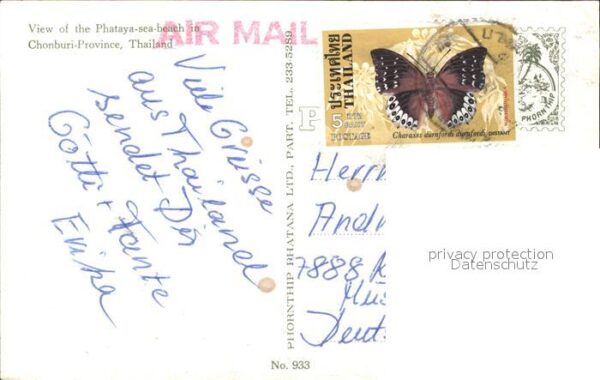 View of the Phataya-sea-beach in
Chonburi-Province, Thailand
AIR MAIL
Viele Grüsse
aus Thailand
sendet Dir
Götti + Tante
Erika
PHORNTHIP PHATANA LTD., PART. TEL. 233-5289
ประเทศไทย
THAILAND
5
BAHT
POSTAGE
Charaxes durnfordi
PHORNTHIP
P
Herrn
Andr
7888
Deut
privacy protection
Datenschutz
No. 933